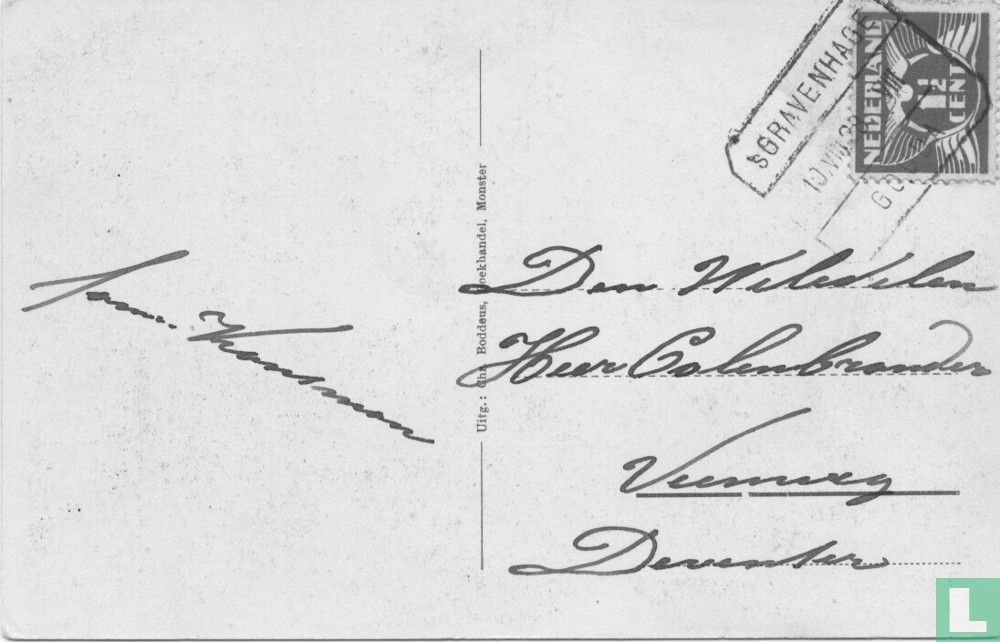 Fam. Krantsman
Uitg.: Chr. Boddeus, Boekhandel, Monster
'SGRAVENHAGE
10.VIII.38
GOUDA
NEDERLAND
1½
CENT
Den WelEdelen
Heer Colenbrander
Veenweg
Deventer
L